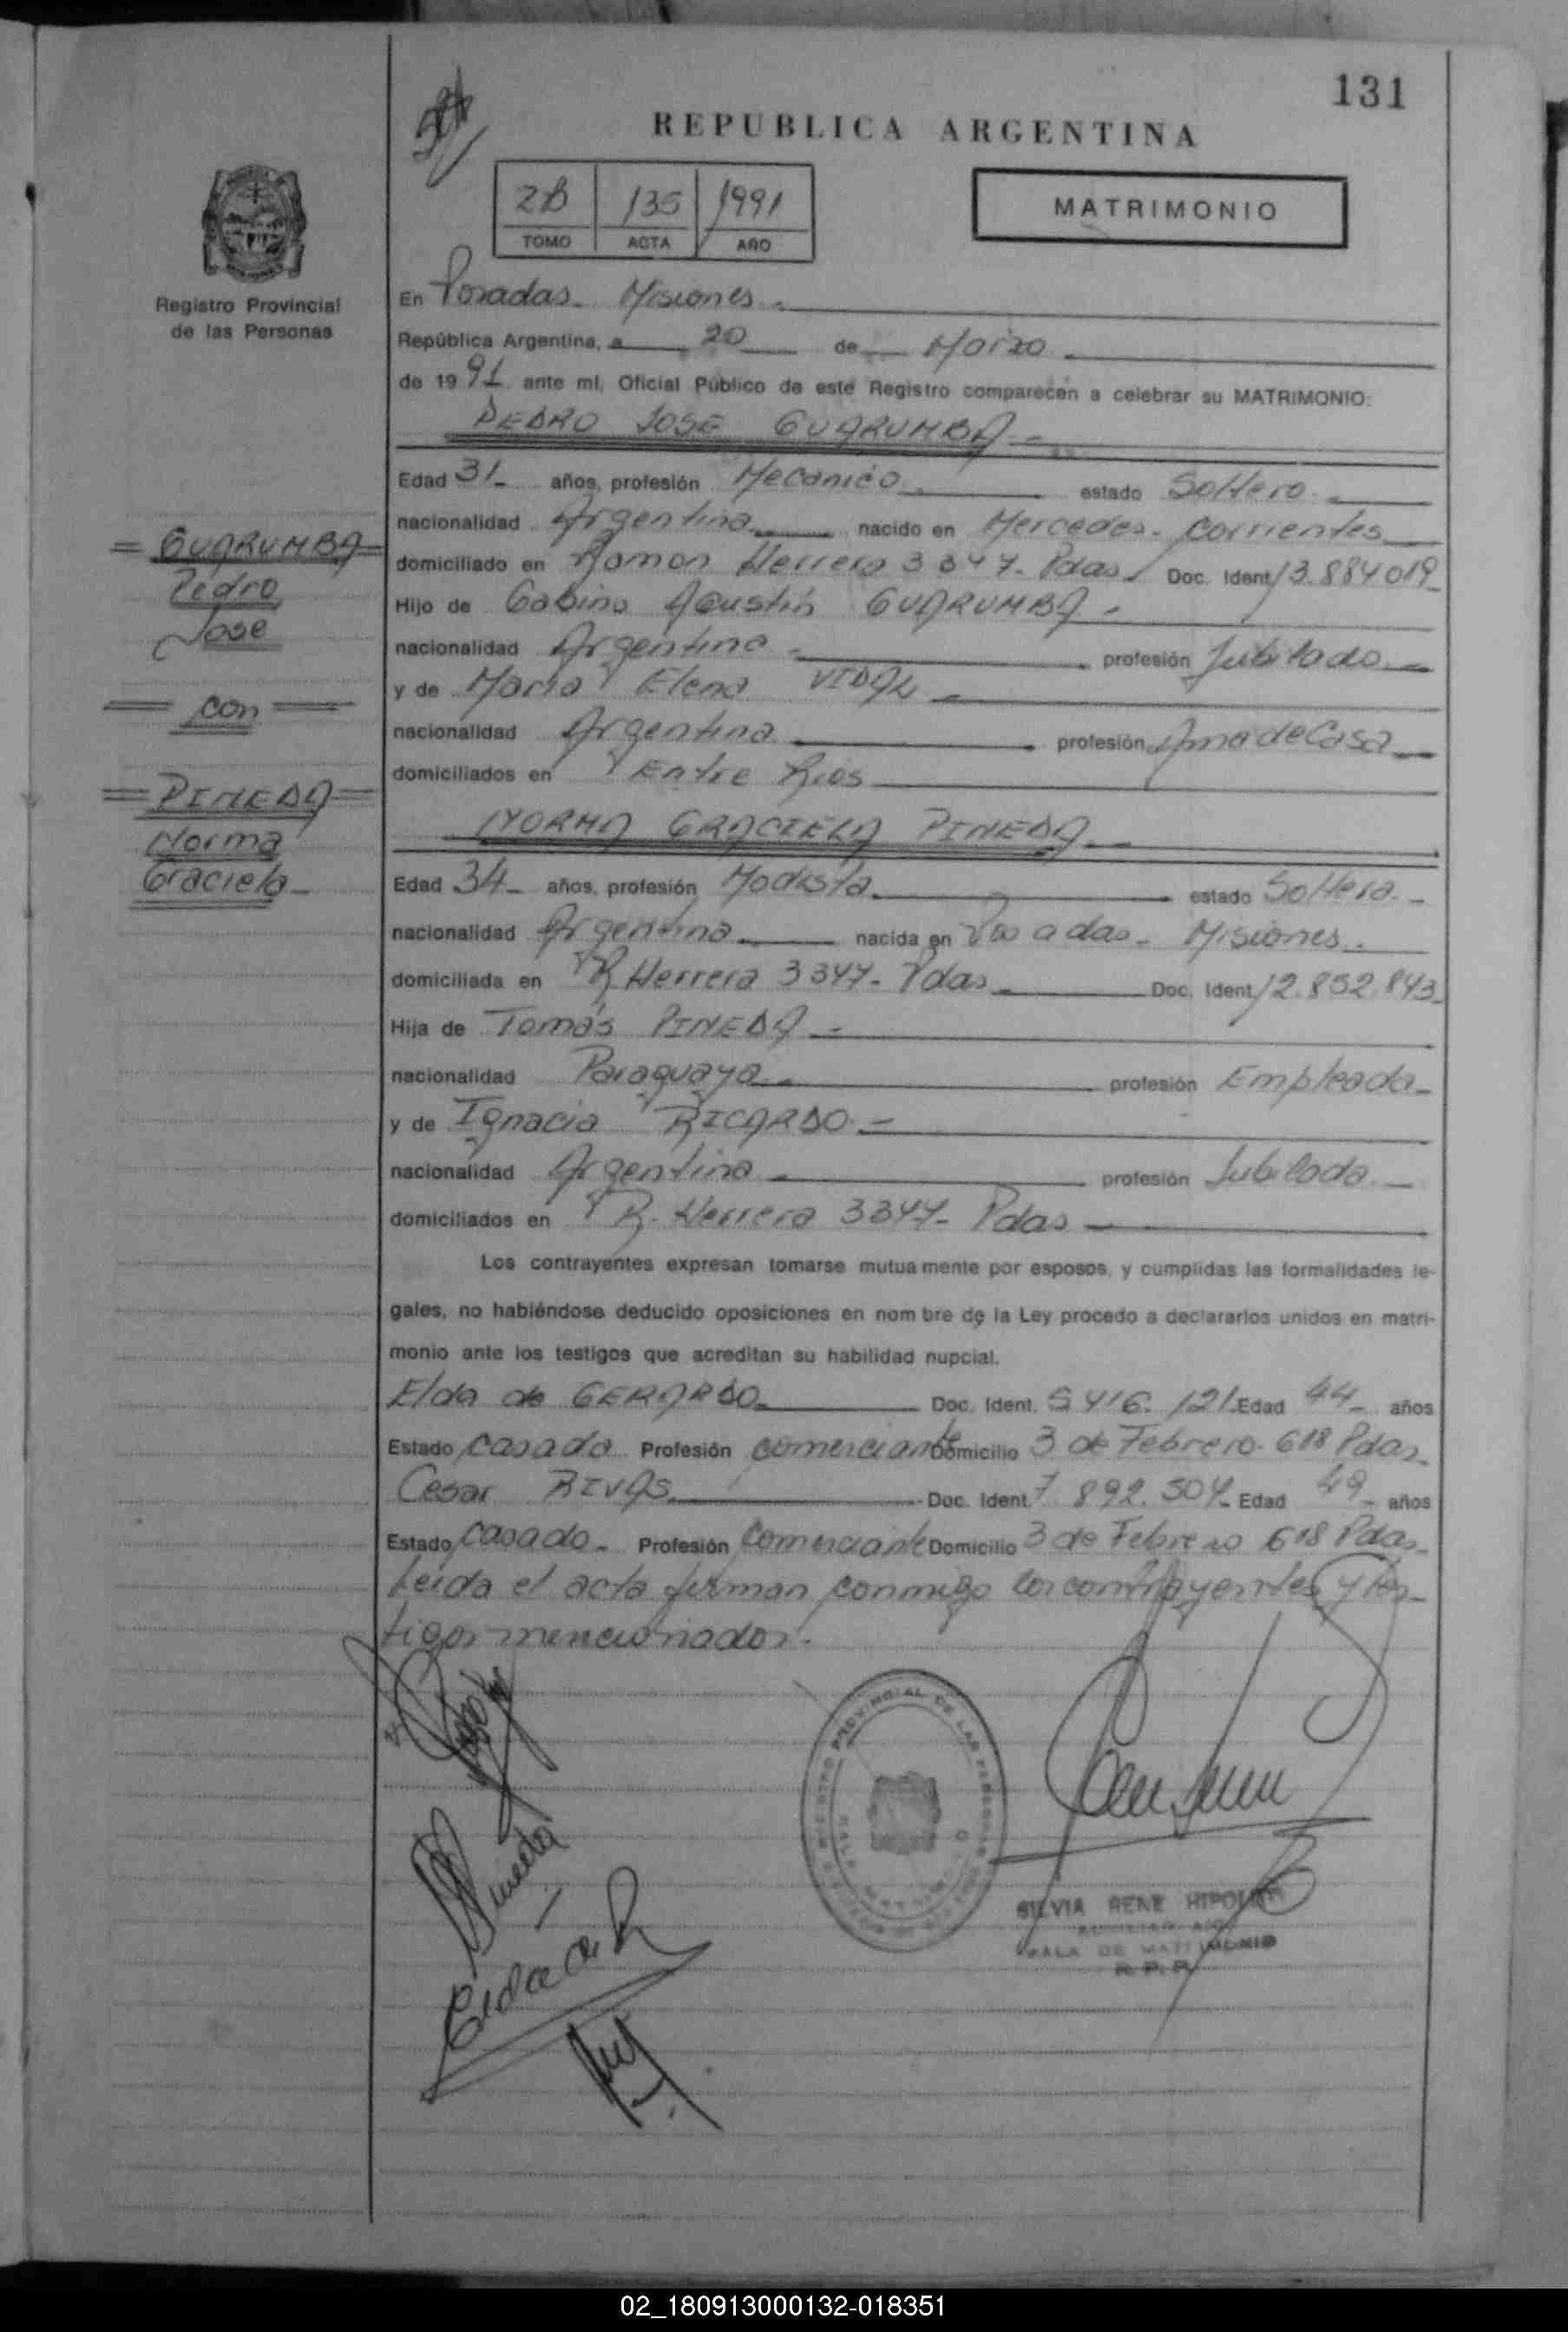 131
REPUBLICA ARGENTINA
2B 135 1991
TOMO ACTA AÑO
MATRIMONIO
Registro Provincial
de las Personas
En Posadas - Misiones -
República Argentina, a 20 de Marzo
de 1991 ante mí, Oficial Público de este Registro comparecen a celebrar su MATRIMONIO:
PEDRO JOSE GUARUMBA -
Edad 31 - años, profesión Mecanico - estado Soltero -
nacionalidad Argentina nacido en Mercedes - Corrientes
domiciliado en Ramon Herrera 3347 - Pdas. Doc. Ident. 13.884.019 -
Hijo de Gabino Agustin GUARUMBA -
nacionalidad Argentina - profesión Jubilado -
y de Maria Elena VIDAL -
nacionalidad Argentina profesión Ama de Casa
domiciliados en Entre Rios
NORMA GRACIELA PINEDA
Edad 34 - años, profesión Modista estado Soltera -
nacionalidad Argentina nacida en Posadas - Misiones -
domiciliada en R Herrera 3347 - Pdas Doc. Ident. 12.852.843 -
Hija de Tomás PINEDA -
nacionalidad Paraguaya - profesión Empleada -
y de Ignacia RICARDO -
nacionalidad Argentina - profesión Jubilada -
domiciliados en R. Herrera 3347 - Pdas
Los contrayentes expresan tomarse mutuamente por esposos, y cumplidas las formalidades le-
gales, no habiéndose deducido oposiciones en nombre de la Ley procedo a declararlos unidos en matri-
monio ante los testigos que acreditan su habilidad nupcial.
Elda de GERARDO Doc. Ident. 5 416. 121 - Edad 44 - años
Estado casada Profesión comerciante Domicilio 3 de Febrero - 618 Pdas -
Cesar RIVAS Doc. Ident. 7 892. 504 - Edad 49 - años
Estado casado - Profesión comerciante Domicilio 3 de Febrero 618 Pdas -
Leida el acta firman conmigo los contrayentes y tes-
tigos mencionados.
= GUARUMBA =
Pedro
Jose
= con =
= PINEDA =
Norma
Graciela -
REGISTRO PROVINCIAL DE LAS PERSONAS
SILVIA RENE HIPOLITO
SALA DE MATRIMONIO
R. P. P.
02_180913000132-018351